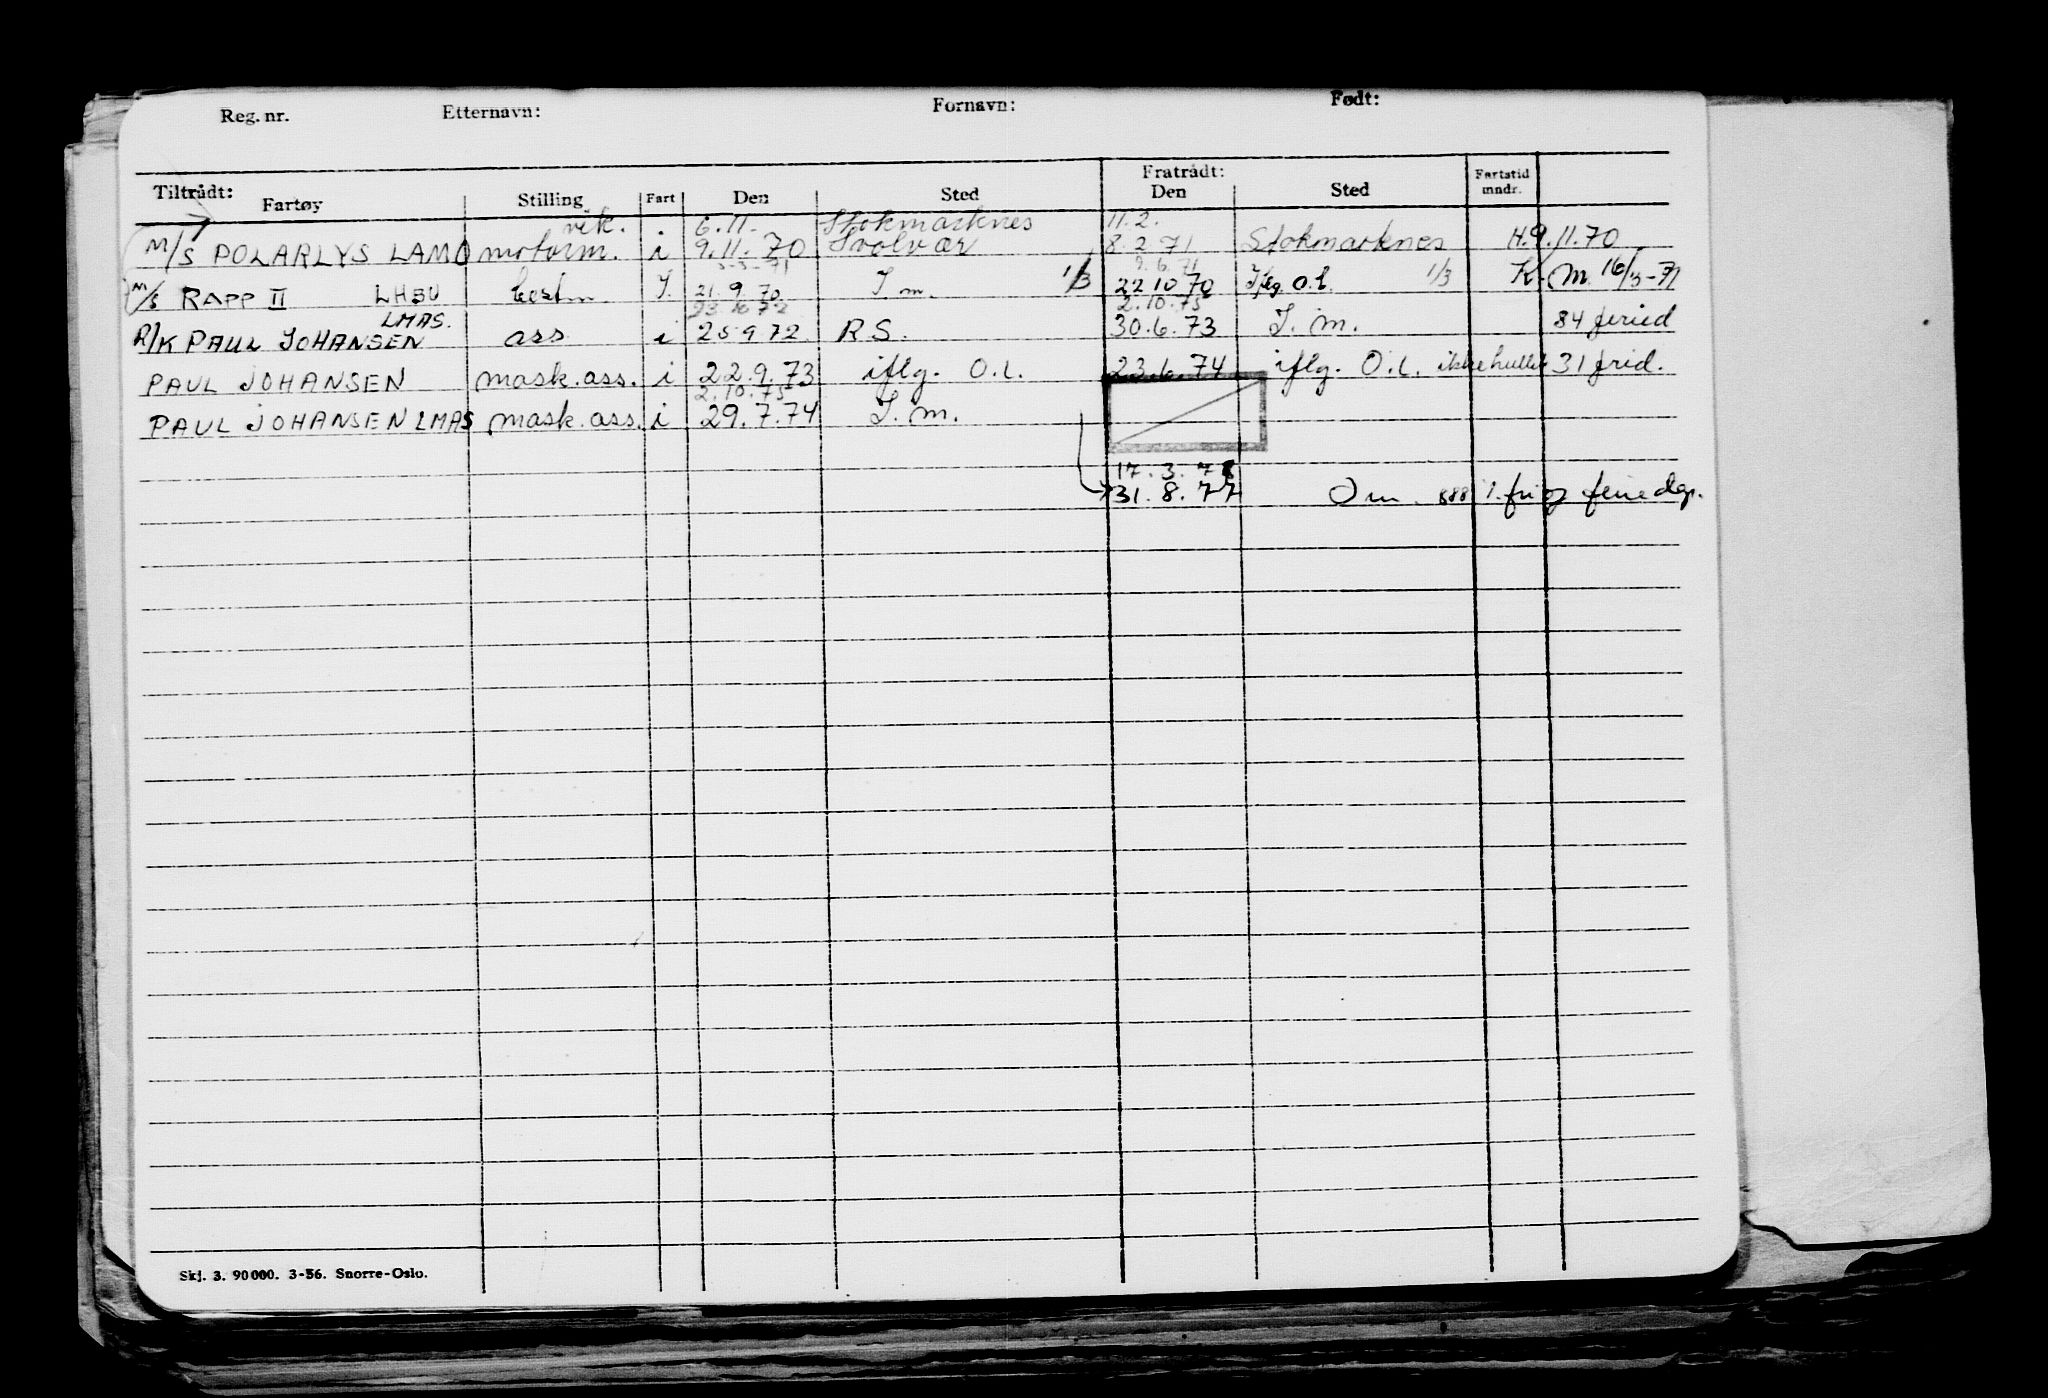 Reg. nr. Etternavn: Fornavn: Født:
Tiltrådt: Fratrådt:
Fartøy Stilling Fart Den Sted Den Sted Fartstid mndr.
vik. 6.11. Stokmarknes 11.2.
M/S POLARLYS LAMO motorm. i 9.11.70 Svolvær 8.2.71 Stokmarknes H.9.11.70
3-3-71 9.6.71
M/S RAPP II LHBU bestm. I. 21.9.70 I m. 1/3 22 10 70 Iflg O.l. 1/3 K. M 16/3-71
LMAS. 2.10.75
R/K PAUL JOHANSEN ass i 25 9 72. R S. 30.6.73 I. m. 84 feried
PAUL JOHANSEN mask.ass. i 22.9.73 iflg. O.l. 23.6.74 iflg. O.l. ikke hullet 31 frid.
2.10.75
PAUL JOHANSEN LMAS mask.ass. i 29.7.74 I. m.
17.3.78
31.8.77 O m. 888 1. fri og feriedgr.
Skj. 3. 90 000. 3-56. Snorre-Oslo.